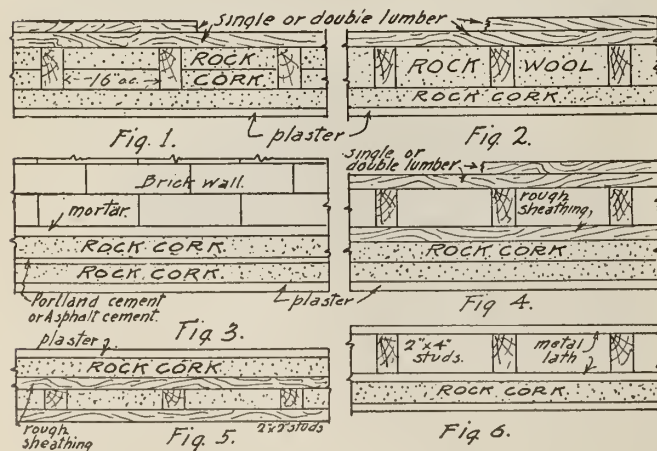 single or double lumber
16" o.c.
ROCK
CORK
Fig. 1.
plaster
ROCK WOOL
ROCK CORK
Fig. 2.
Brick wall.
mortar.
ROCK CORK
ROCK CORK
Portland cement
or Asphalt cement.
Fig 3.
plaster
single or
double lumber
rough
sheathing,
ROCK CORK
Fig 4.
plaster
ROCK CORK
rough
sheathing
Fig. 5.
2"x2" studs
2"x4"
studs.
metal
lath
ROCK CORK
Fig 6.